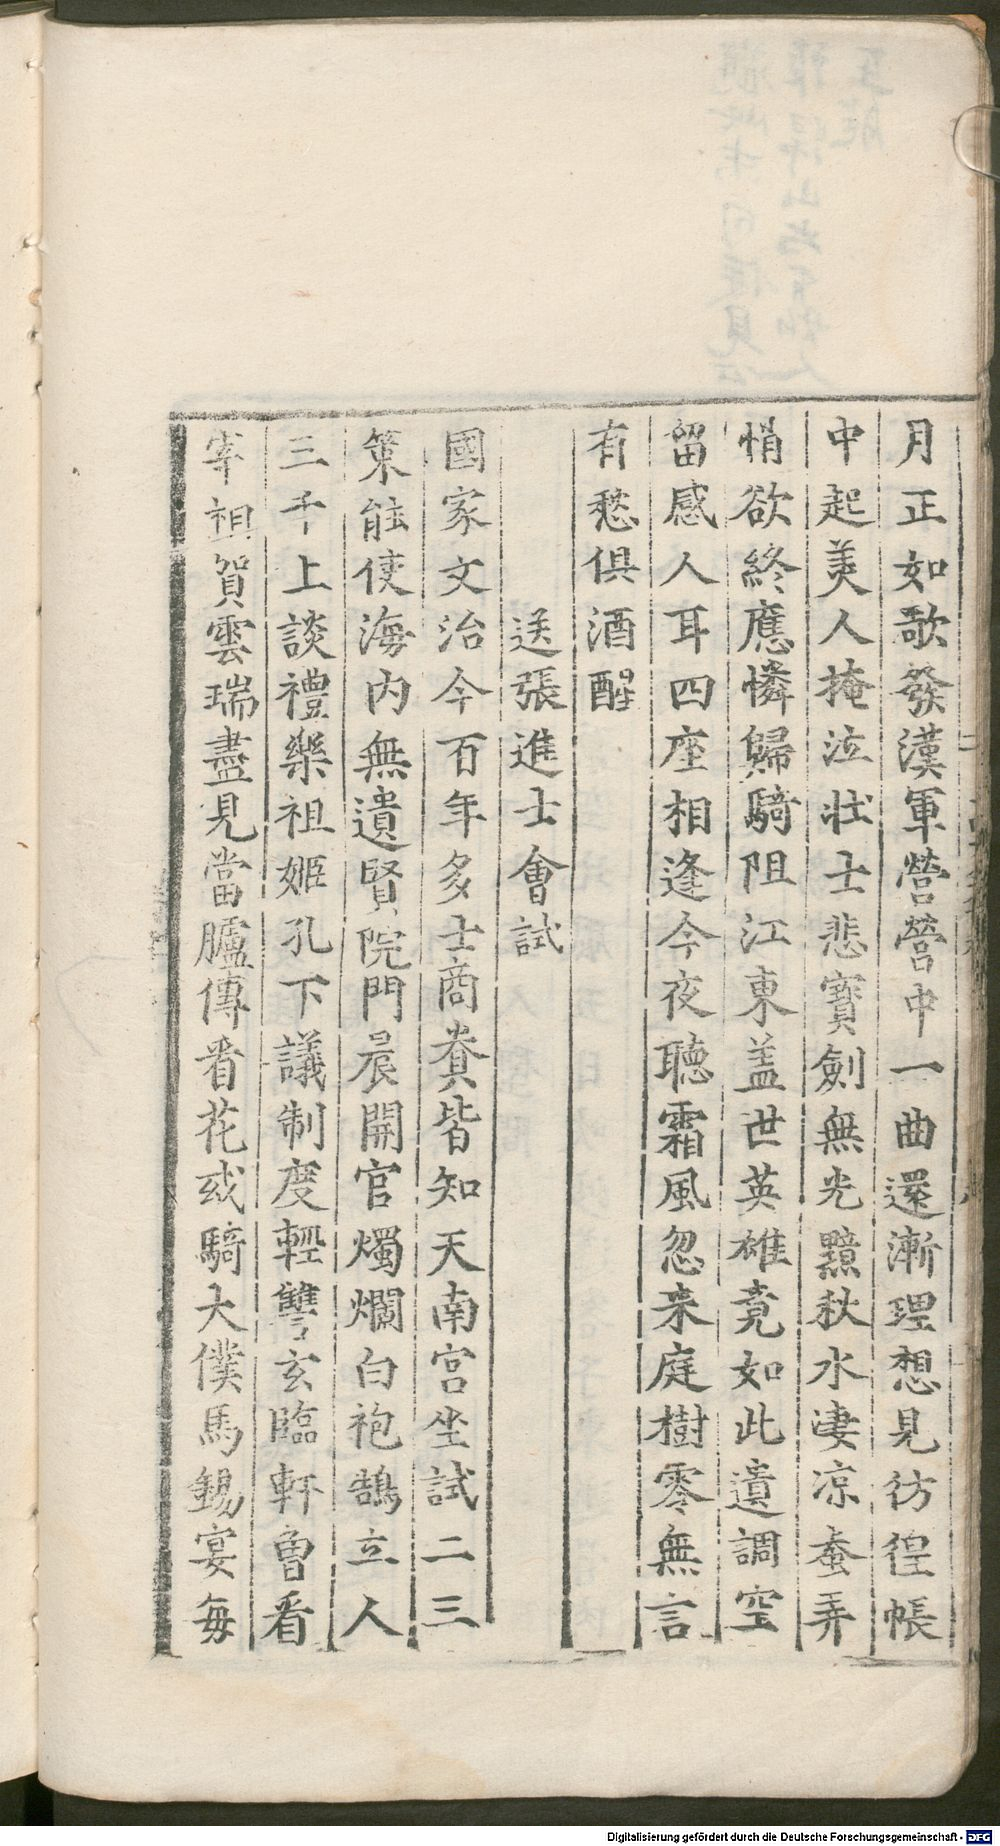 月正如歌發漢軍營營中一曲還漸理想見彷徨帳
中起美人掩泣壯士悲寶劍無光黯秋水凄凉奏弄
悄欲終應憐歸騎阻江東盖世英雄竟如此遺調空
留感人耳四座相逢今夜聽霜風忽来庭樹零無言
有愁俱酒醒
送張進士會試
國家文治今百年多士商賚皆知天南宮坐試二三
策能使海内無遺賢院門晨開官燭爛白袍鵠立人
三千上談禮樂祖姬孔下議制度輕讐玄臨軒曾看
宰相賀雲瑞盡見當臚傳看花或騎大僕馬錫宴每
Digitalisierung gefördert durch die Deutsche Forschungsgemeinschaft - DFG